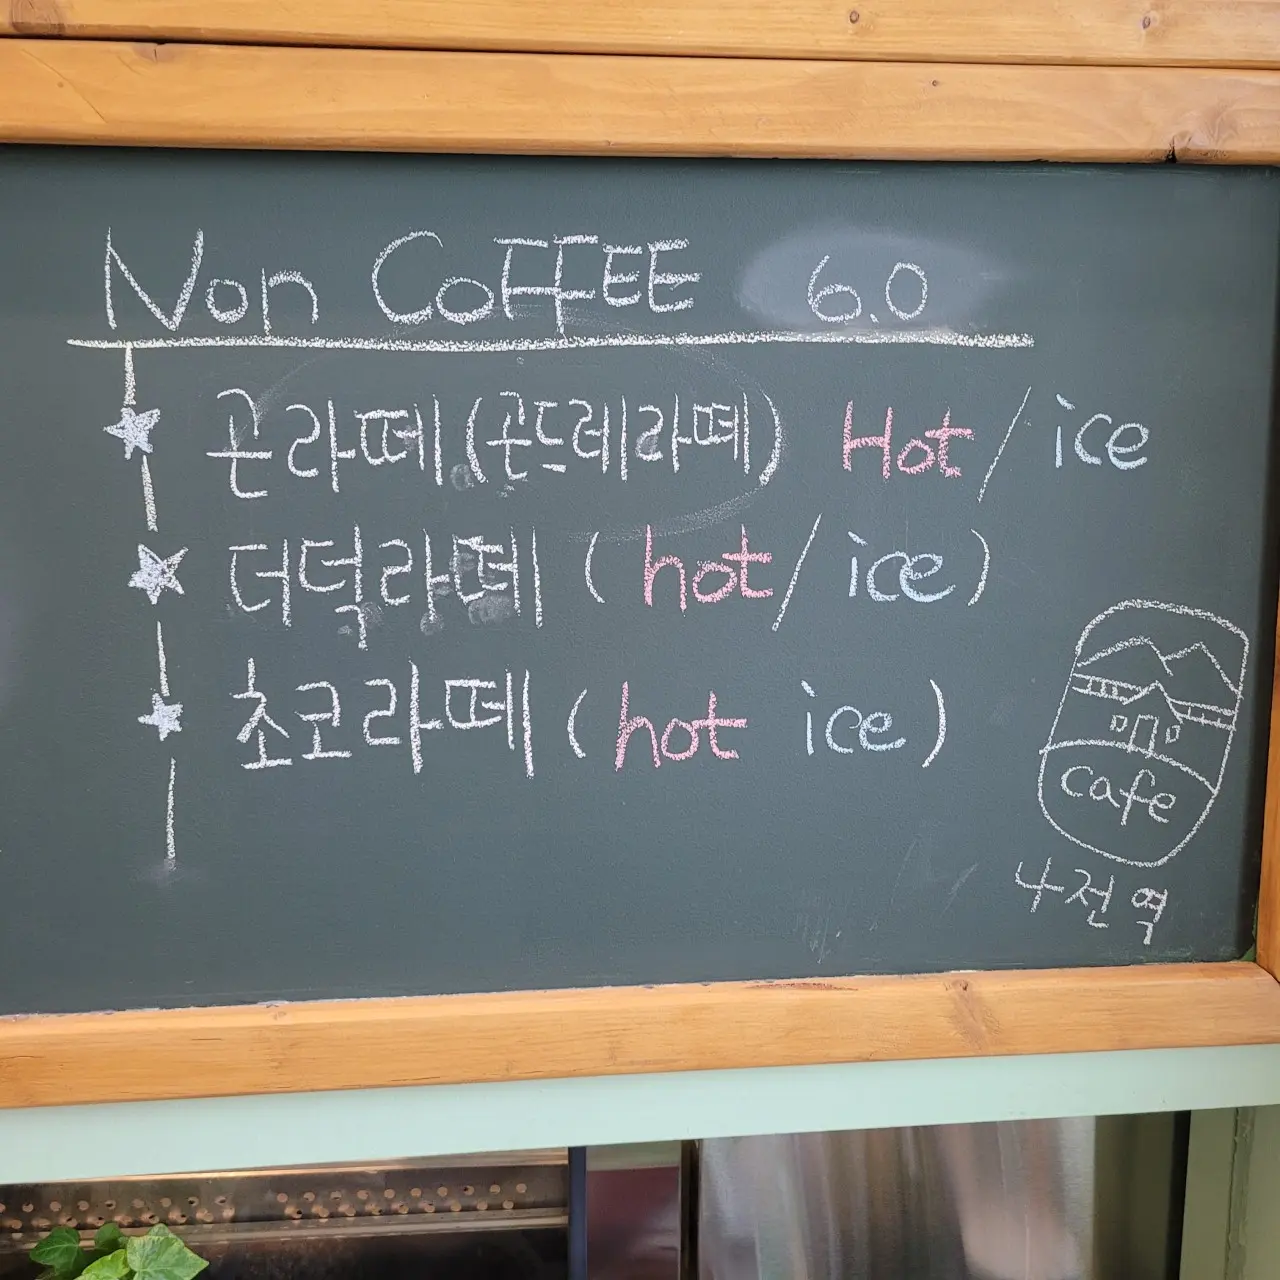 Non CoFFEE 6.0
곤라떼(곤드레라떼) Hot/ice
더덕라떼 (hot/ice)
초코라떼 (hot ice)
cafe
나전역